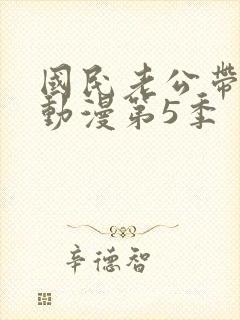 國民老公帶
動漫第5季
辛德智